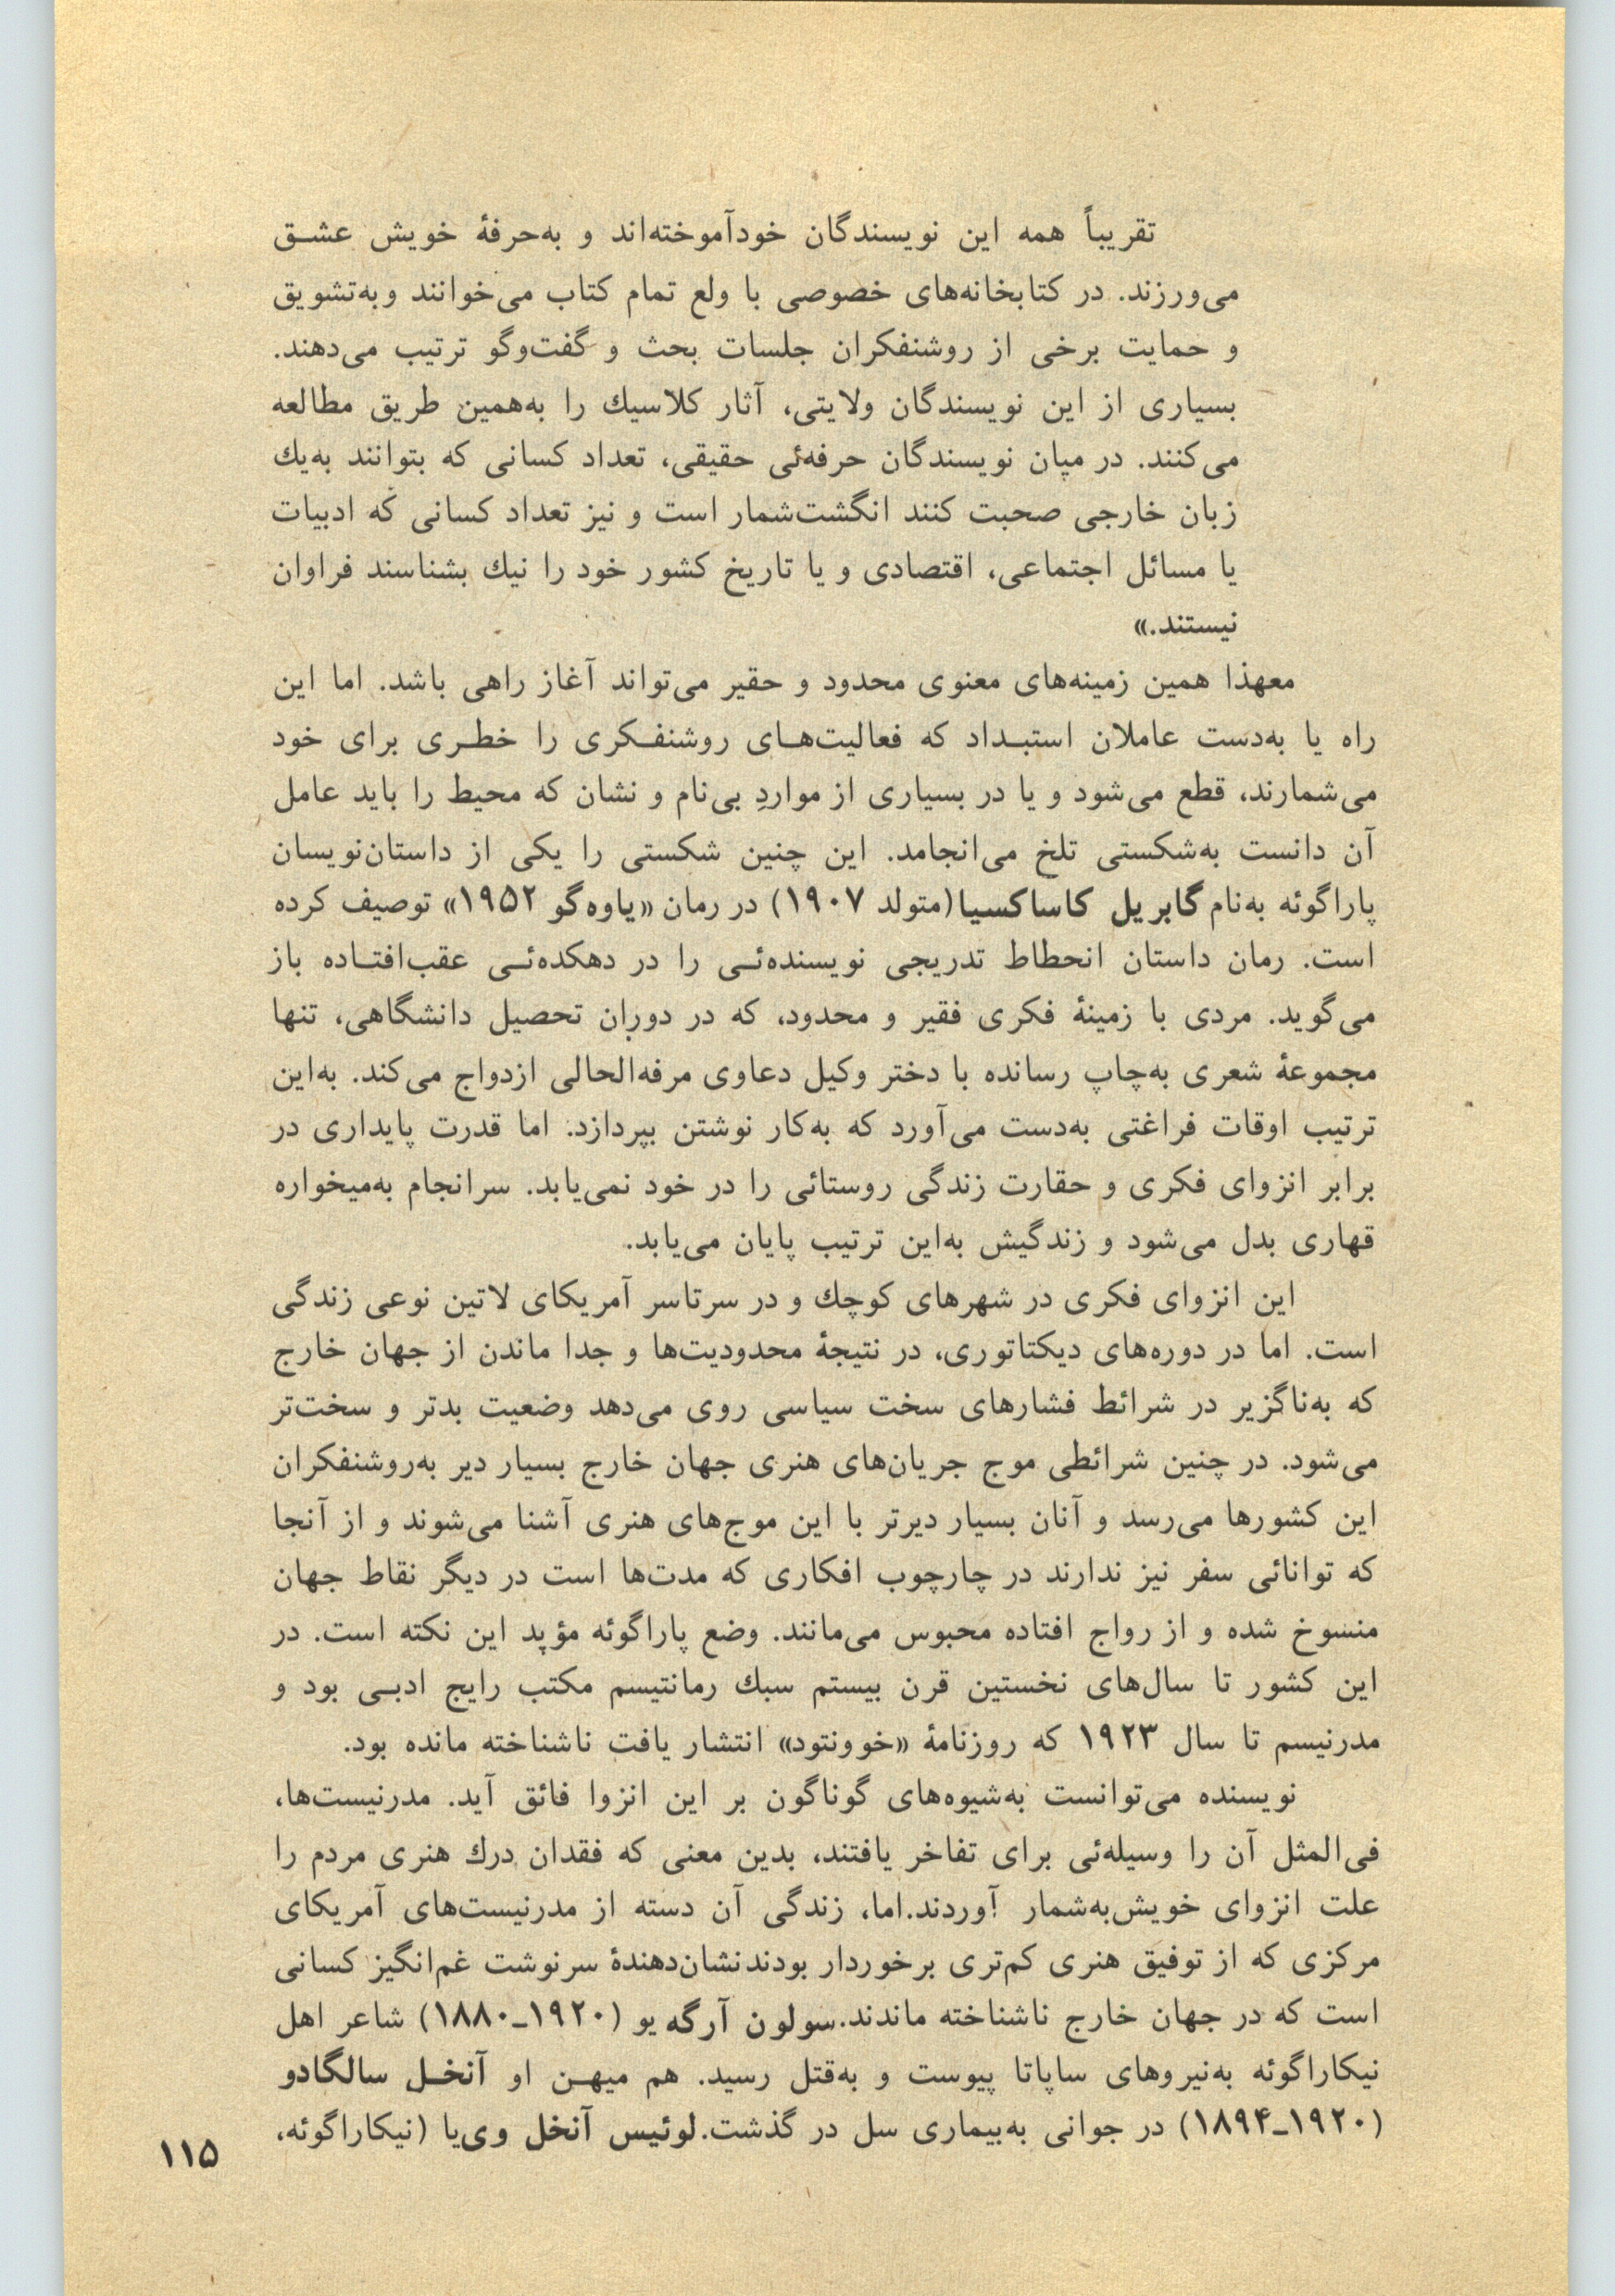 تقریباً همه این نویسندگان خودآموخته‌اند و به‌حرفهٔ خویش عشـق
می‌ورزند. در کتابخانه‌های خصوصی با ولع تمام کتاب می‌خوانند وبه‌تشویق
و حمایت برخی از روشنفکران جلسات بحث و گفت‌وگو ترتیب می‌دهند.
بسیاری از این نویسندگان ولایتی، آثار کلاسیك را به‌همین طریق مطالعه
می‌کنند. در میان نویسندگان حرفه‌ئی حقیقی، تعداد کسانی که بتوانند به‌یك
زبان خارجی صحبت کنند انگشت‌شمار است و نیز تعداد کسانی که ادبیات
یا مسائل اجتماعی، اقتصادی و یا تاریخ کشور خود را نیك بشناسند فراوان
نیستند.»
معهذا همین زمینه‌های معنوی محدود و حقیر می‌تواند آغاز راهی باشد. اما این
راه یا به‌دست عاملان استبـداد که فعالیت‌هـای روشنفـکری را خطـری برای خود
می‌شمارند، قطع می‌شود و یا در بسیاری از مواردِ بی‌نام و نشان که محیط را باید عامل
آن دانست به‌شکستی تلخ می‌انجامد. این چنین شکستی را یکی از داستان‌نویسان
پاراگوئه به‌نام گابریل کاساکسیا(متولد ۱۹۰۷) در رمان «یاوه‌گو ۱۹۵۲» توصیف کرده
است. رمان داستان انحطاط تدریجی نویسنده‌ئـی را در دهکده‌ئـی عقب‌افتـاده باز
می‌گوید. مردی با زمینهٔ فکری فقیر و محدود، که در دوران تحصیل دانشگاهی، تنها
مجموعهٔ شعری به‌چاپ رسانده با دختر وکیل دعاوی مرفه‌الحالی ازدواج می‌کند. به‌این
ترتیب اوقات فراغتی به‌دست می‌آورد که به‌کار نوشتن بپردازد. اما قدرت پایداری در
برابر انزوای فکری و حقارت زندگی روستائی را در خود نمی‌یابد. سرانجام به‌میخواره
قهاری بدل می‌شود و زندگیش به‌این ترتیب پایان می‌یابد.
این انزوای فکری در شهرهای کوچك و در سرتاسر آمریکای لاتین نوعی زندگی
است. اما در دوره‌های دیکتاتوری، در نتیجهٔ محدودیت‌ها و جدا ماندن از جهان خارج
که به‌ناگزیر در شرائط فشارهای سخت سیاسی روی می‌دهد وضعیت بدتر و سخت‌تر
می‌شود. در چنین شرائطی موج جریان‌های هنری جهان خارج بسیار دیر به‌روشنفکران
این کشورها می‌رسد و آنان بسیار دیرتر با این موج‌های هنری آشنا می‌شوند و از آنجا
که توانائی سفر نیز ندارند در چارچوب افکاری که مدت‌ها است در دیگر نقاط جهان
منسوخ شده و از رواج افتاده محبوس می‌مانند. وضع پاراگوئه مؤید این نکته است. در
این کشور تا سال‌های نخستین قرن بیستم سبك رمانتیسم مکتب رایج ادبـی بود و
مدرنیسم تا سال ۱۹۲۳ که روزنامهٔ «خوونتود» انتشار یافت ناشناخته مانده بود.
نویسنده می‌توانست به‌شیوه‌های گوناگون بر این انزوا فائق آید. مدرنیست‌ها،
فی‌المثل آن را وسیله‌ئی برای تفاخر یافتند، بدین معنی که فقدان درك هنری مردم را
علت انزوای خویش‌به‌شمار آوردند.اما، زندگی آن دسته از مدرنیست‌های آمریکای
مرکزی که از توفیق هنری کم‌تری برخوردار بودندنشان‌دهندهٔ سرنوشت غم‌انگیز کسانی
است که در جهان خارج ناشناخته ماندند.سولون آرگه یو (۱۹۲۰ـ۱۸۸۰) شاعر اهل
نیکاراگوئه به‌نیروهای ساپاتا پیوست و به‌قتل رسید. هم میهـن او آنخـل سالگادو
(۱۹۲۰ـ۱۸۹۴) در جوانی به‌بیماری سل در گذشت.لوئیس آنخل وی‌یا (نیکاراگوئه،
۱۱۵